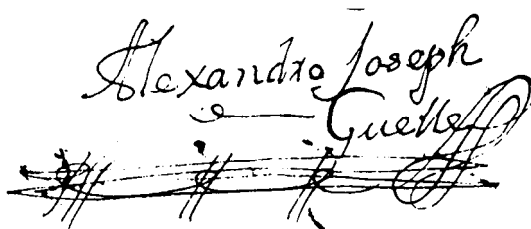 Alexandro Joseph
Guelle